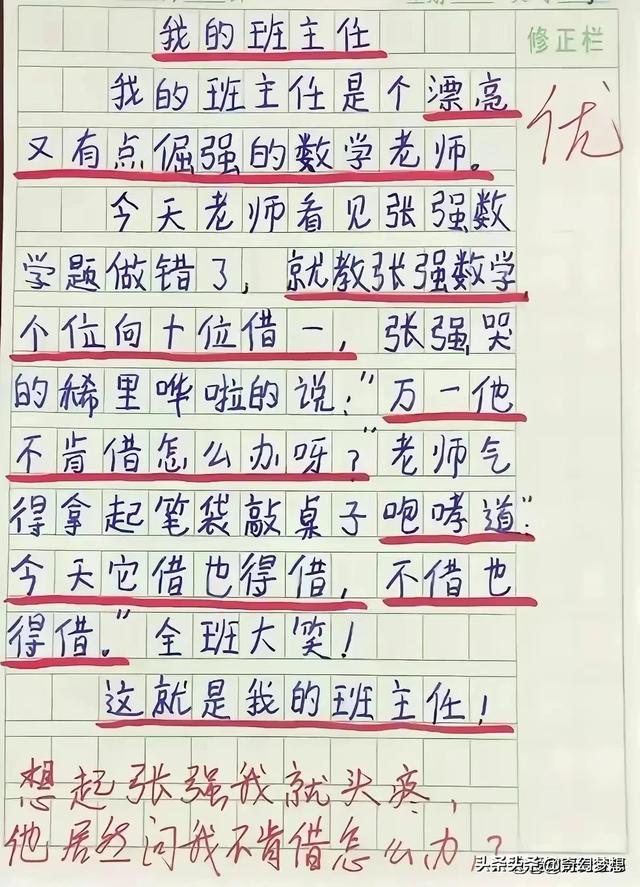 我的班主任
修正栏
我的班主任是个漂亮
优
又有点倔强的数学老师。
今天老师看见张强数
学题做错了，就教张强数学
个位向十位借一，张强哭
的稀里哗啦的说：“万一他
不肯借怎么办呀？”老师气
得拿起笔袋敲桌子咆哮道“
今天它借也得借，不借也
得借。”全班大笑！
这就是我的班主任！
想起张强我就头疼，
他居然问我不肯借怎么办？
头条头条@奇幻梦想